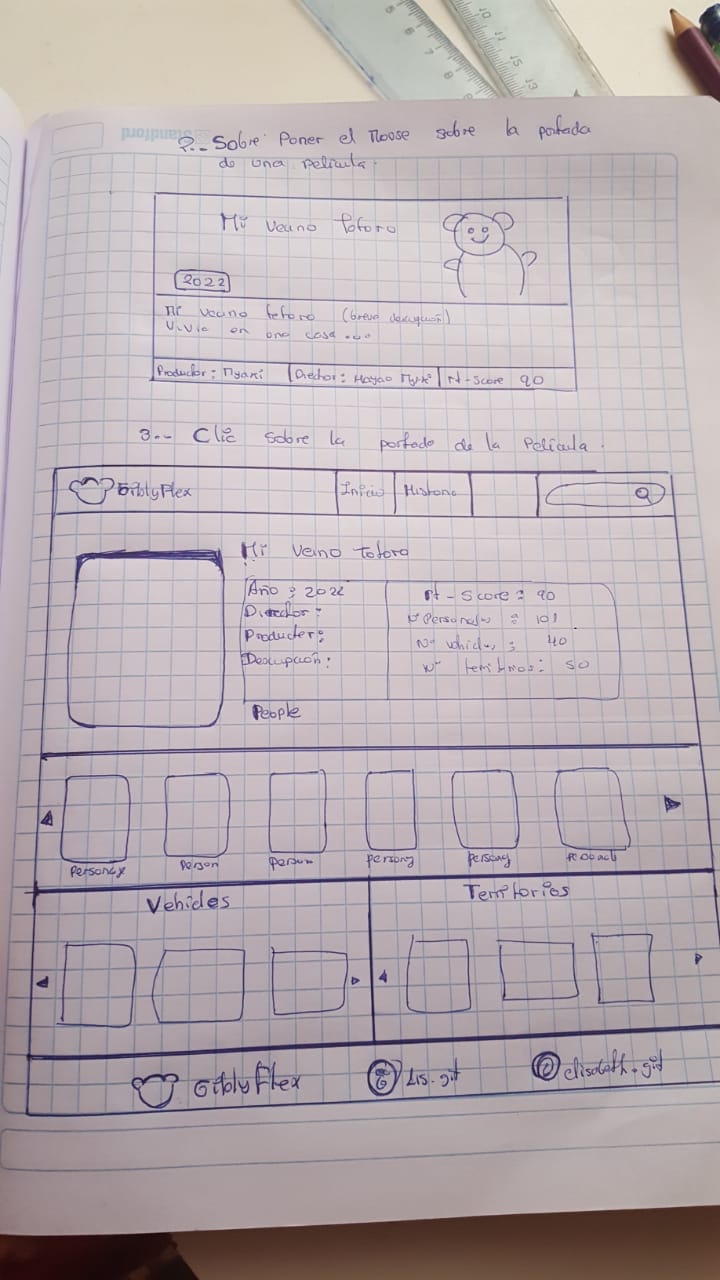 Standford
2.- Sobre Poner el Moose sobre la portada
de una película.
Mi vecino totoro
2022
Mi vecino totoro (breve descripción)
Vivía en una casa ...
Productor: Myaki | Director: Hayao Myki | rt-Score 90
3.- Clic sobre la portada de la Película.
GiblyFlex Inicio Historia
Mi vecino totoro
Año: 2022 rt-Score: 90
Director: Nº Personajes: 101
Producter: Nº vehicles: 40
Descripción: Nº territrios: 50
People
Personaje Person Person persong persong
Vehicles Territorios
GiblyFlex Lis.git elisabeth.git